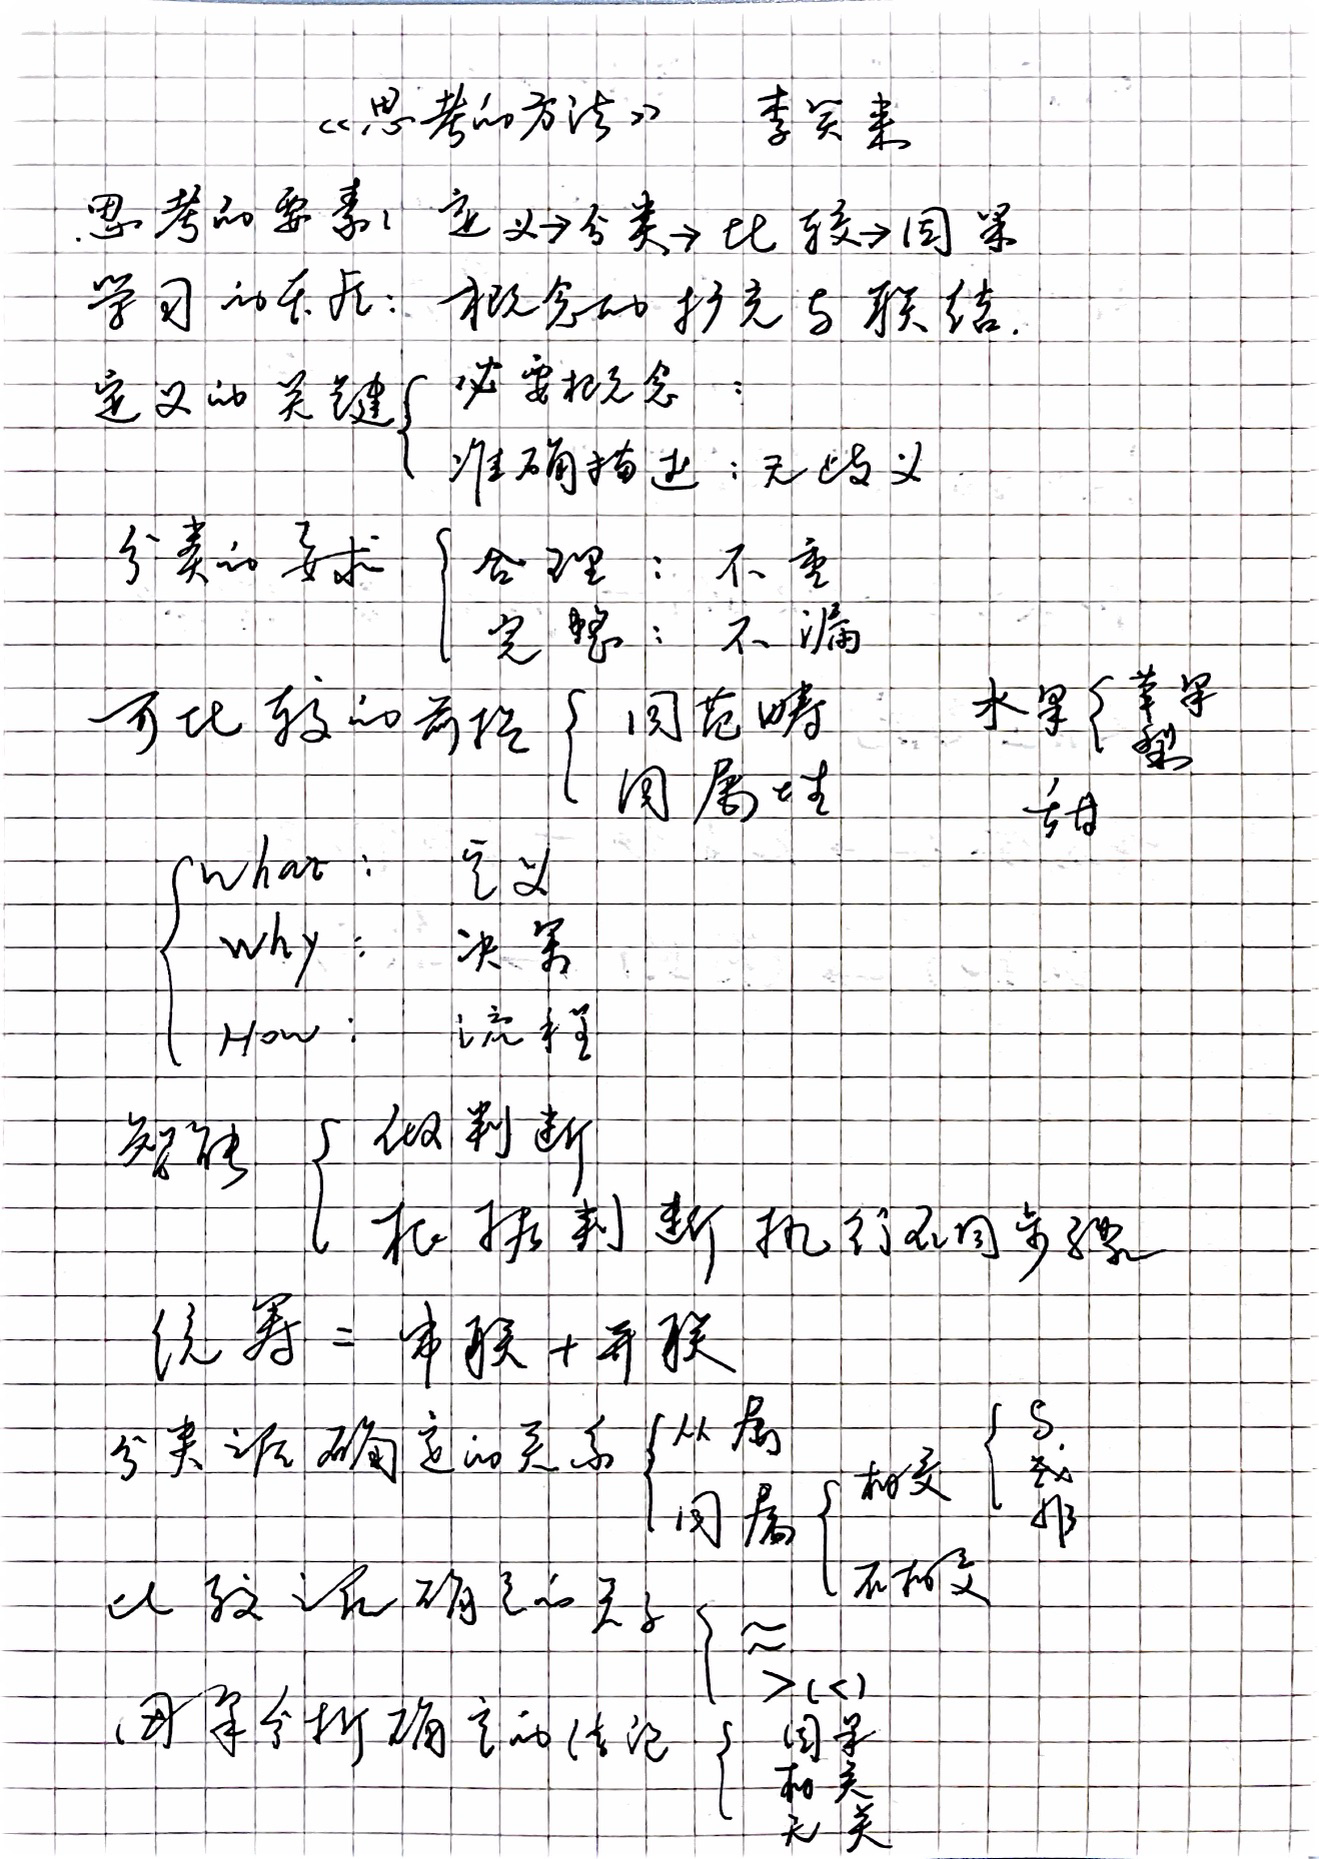 《思考的方法》 李笑来
思考的要素: 定义→分类→比较→因果
学习的本质: 概念的扩充与联结.
定义的关键 { 必要概念:
准确描述: 无歧义
分类的要求 { 合理: 不重
完整: 不漏
可比较的前提 { 同范畴 水果 { 苹果
梨
同属性 甜
{ What: 定义
Why: 决策
How: 流程
智能 { 做判断
根据判断执行不同步骤
统筹 = 串联 + 并联
分类法确定的关系 { 从属
同属 { 相交 { 与
或
非
不相交
比较法确定的关系 { ≈
>(<)
因果分析确定的结论 { 因果
相关
无关